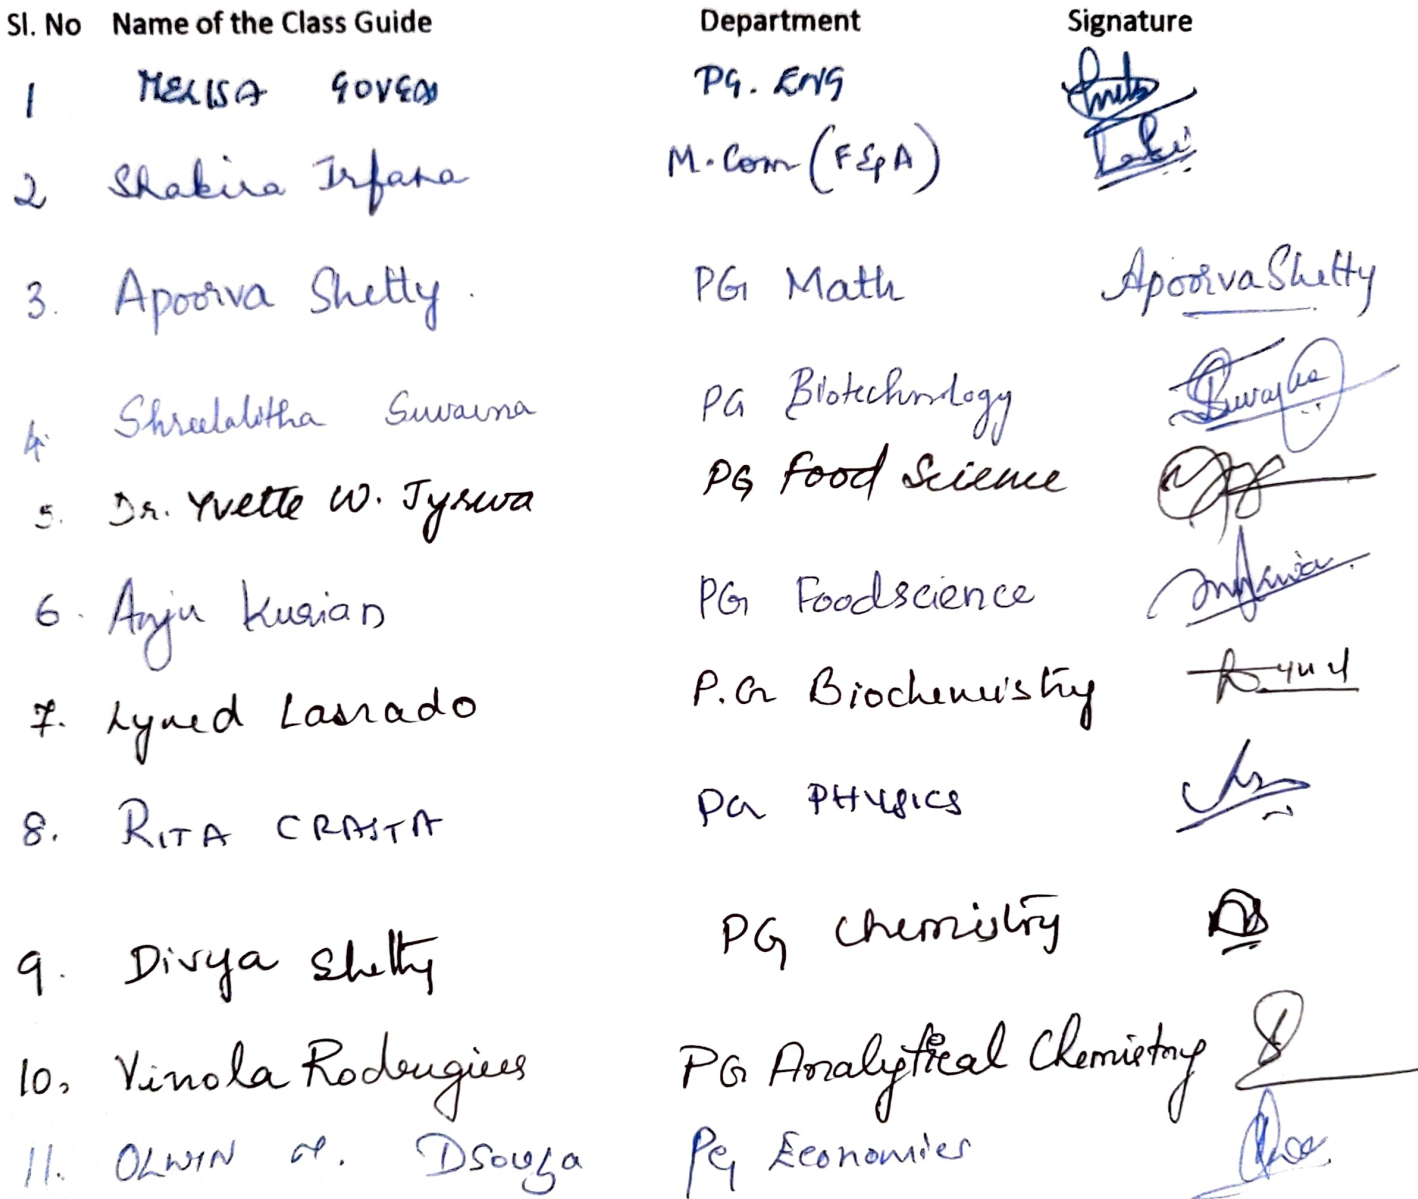 Sl. No Name of the Class Guide Department Signature
1 MELISA GOVEAS PG. ENG
2 Shakira Irfana M.Com (F&A)
3. Apoorva Shetty. PG Math Apoorva Shetty
4. Shreelalitha Suvarna PG Biotechnology
5. Dr. Yvette W. Tyrwa PG Food Science
6. Anju Kurian PG Foodscience
7. Lyned Lasrado P.G Biochemistry
8. RITA CRASTA PG PHYSICS
9. Divya Shetty PG Chemistry
10. Vinola Rodrugiues PG Analytical Chemistry
11. OLWIN DSouza PG Economics